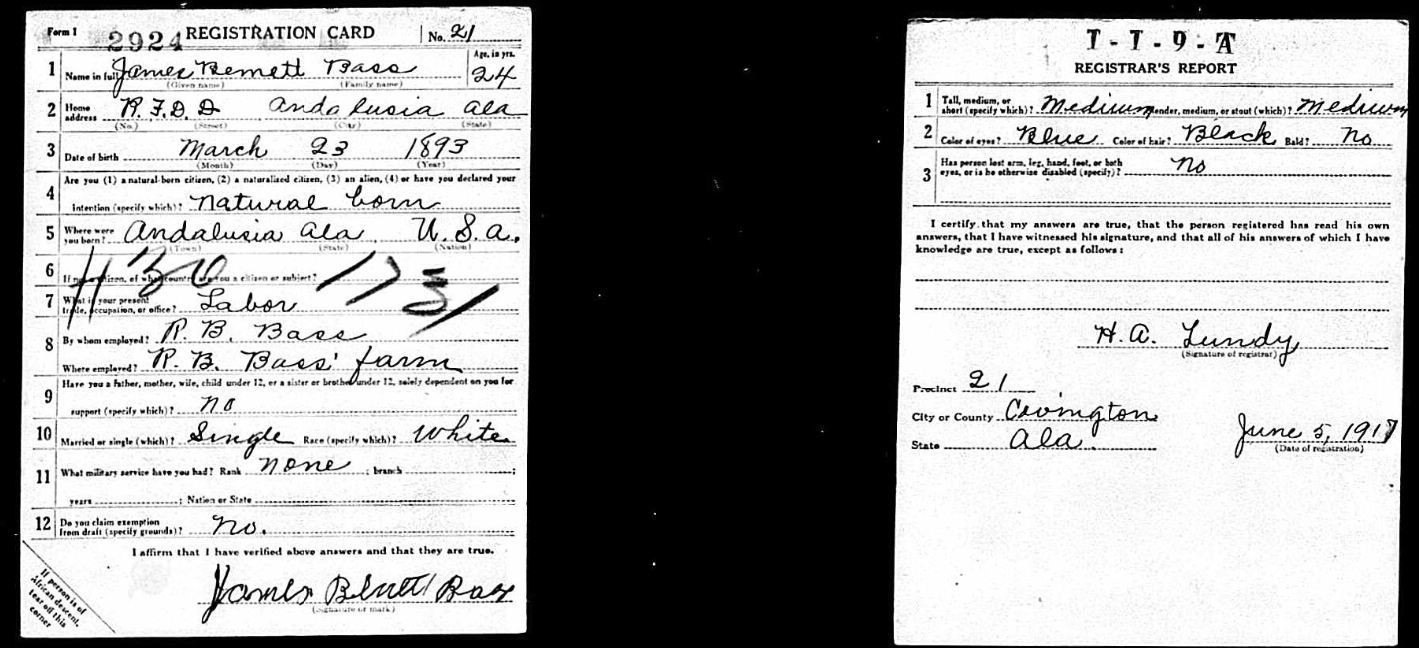 Form 1 2924 REGISTRATION CARD No. 21
1 Name in full James Bennett Bass Age, in yrs. 24
(Given name) (Family name)
2 Home address R.F.D. D Andalusia Ala
(No.) (Street) (City) (State)
3 Date of birth March 23 1893
(Month) (Day) (Year)
4 Are you (1) a natural-born citizen, (2) a naturalized citizen, (3) an alien, (4) or have you declared your
intention (specify which)? Natural born
5 Where were you born? Andalusia Ala. U.S.a.
(Town) (State) (Nation)
6 If not a citizen, of what country are you a citizen or subject?
H 30 173
7 What is your present trade, occupation, or office? Labor
8 By whom employed? R. B. Bass
Where employed? R. B. Bass' farm
9 Have you a father, mother, wife, child under 12, or a sister or brother under 12, solely dependent on you for
support (specify which)? no
10 Married or single (which)? Single Race (specify which)? White
11 What military service have you had? Rank none ; branch ;
years ; Nation or State
12 Do you claim exemption from draft (specify grounds)? No.
I affirm that I have verified above answers and that they are true.
James Bax
(Signature or mark)
If person is of
African descent,
tear off this
corner
1-1-9-A
REGISTRAR'S REPORT
1 Tall, medium, or short (specify which)? Medium Slender, medium, or stout (which)? Medium
2 Color of eyes? Blue Color of hair? Black Bald? No
3 Has person lost arm, leg, hand, foot, or both eyes, or is he otherwise disabled (specify)? No
I certify that my answers are true, that the person registered has read his own
answers, that I have witnessed his signature, and that all of his answers of which I have
knowledge are true, except as follows:
H. A. Lundy
(Signature of registrar)
Precinct 21
City or County Covington
State Ala. June 5, 1917
(Date of registration)